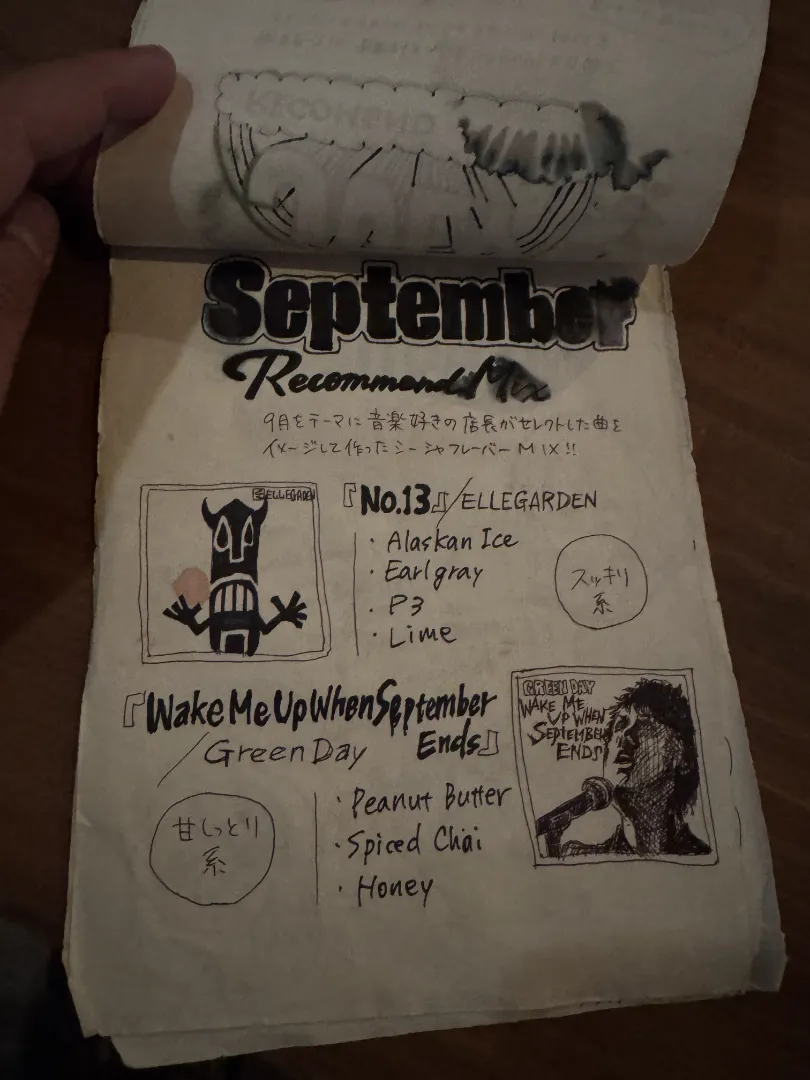 RECOMEND
September
Recommend Mix
9月をテーマに音楽好きの店長がセレクトした曲を
イメージして作ったシーシャフレーバーMIX!!
ELLEGARDEN
『No.13』/ELLEGARDEN
・Alaskan Ice
・Earlgray
・P3
・Lime
スッキリ
系
『Wake Me Up When September
Ends』
/Green Day
GREEN DAY
WAKE ME
UP WHEN
SEPTEMBER
ENDS
甘しっとり
系
・Peanut Butter
・Spiced Chai
・Honey